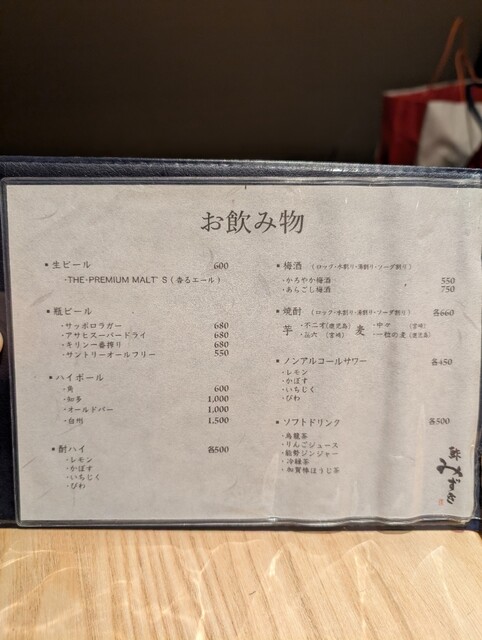 お飲み物
▪生ビール 600
・THE・PREMIUM MALT'S（香るエール）
▪瓶ビール
・サッポロラガー 680
・アサヒスーパードライ 680
・キリン一番搾り 680
・サントリーオールフリー 550
▪ハイボール
・角 600
・知多 1,000
・オールドパー 1,000
・白州 1,500
▪酎ハイ 各500
・レモン
・かぼす
・いちじく
・びわ
▪梅酒 （ロック・水割り・湯割り・ソーダ割り）
・かろやか梅酒 550
・あらごし梅酒 750
▪焼酎 （ロック・水割り・湯割り・ソーダ割り） 各660
芋 ・不二才（鹿児島） 麦 ・中々 （宮崎）
・㐂六 （宮崎） ・一粒の麦（鹿児島）
▪ノンアルコールサワー 各450
・レモン
・かぼす
・いちじく
・びわ
▪ソフトドリンク 各500
・烏龍茶
・りんごジュース
・能勢ジンジャー
・冷緑茶
・加賀棒ほうじ茶